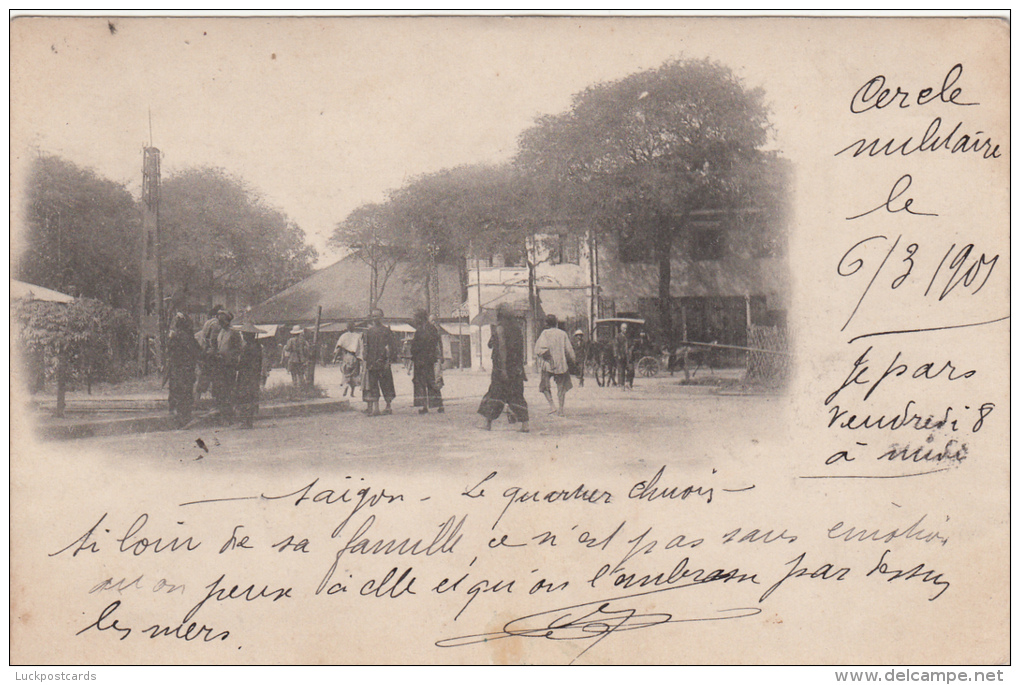 Cercle
militaire
le
6/3/1901
Je pars
vendredi 8
à midi
Saigon - Le quartier chinois
Si loin de sa famille, ce n'est pas sans émotion
qu'on pense à elle et qu'on l'embrasse par dessus
les mers.
Luckpostcards
www.delcampe.net